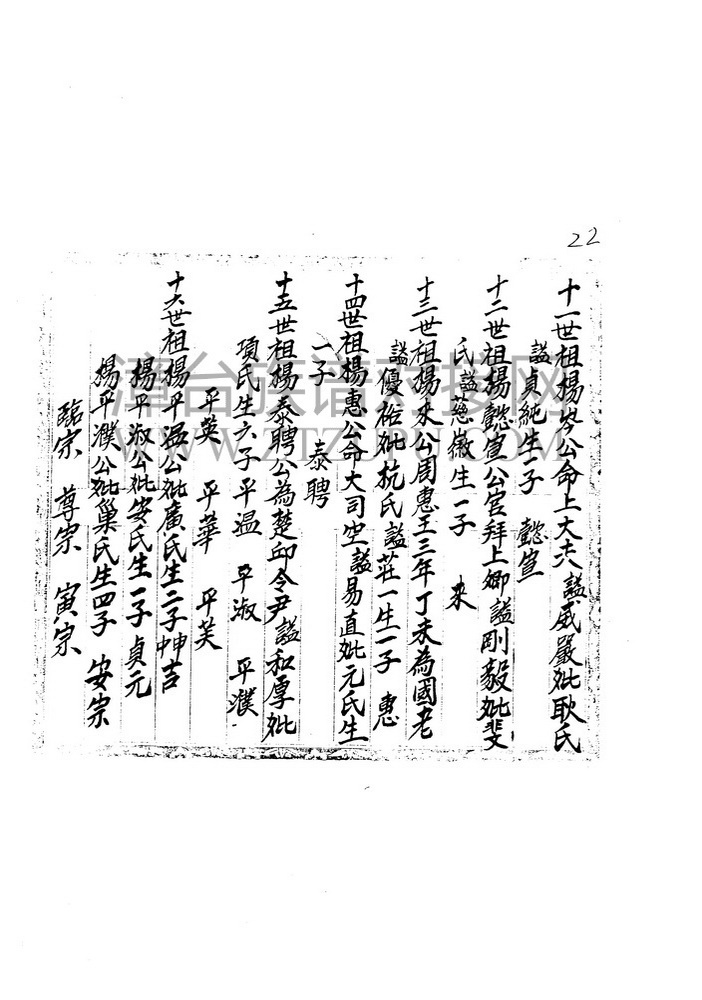 22
十一世祖揚岑公命上大夫諡威嚴妣耿氏
諡貞純生一子 懿宣
十二世祖揚懿宣公官拜上卿諡剛毅妣斐
氏諡慈徽生一子 來
十三世祖揚來公周惠王三年丁未為國老
諡優裕妣杭氏諡莊一生一子 惠
十四世祖揚惠公命大司空諡易直妣元氏生
一子 泰聘
十五世祖揚泰聘公為楚邱令尹諡和厚妣
項氏生六子平温 平淑 平濮
平英 平華 平芙
十六世祖揚平温公妣廣氏生二子 吉
揚平淑公妣安氏生一子 貞元
揚平濮公妣巢氏生四子 安宗
臨宗 尊宗 寅宗
潭台族谱对接网
WWW.ZTZUPU.COM